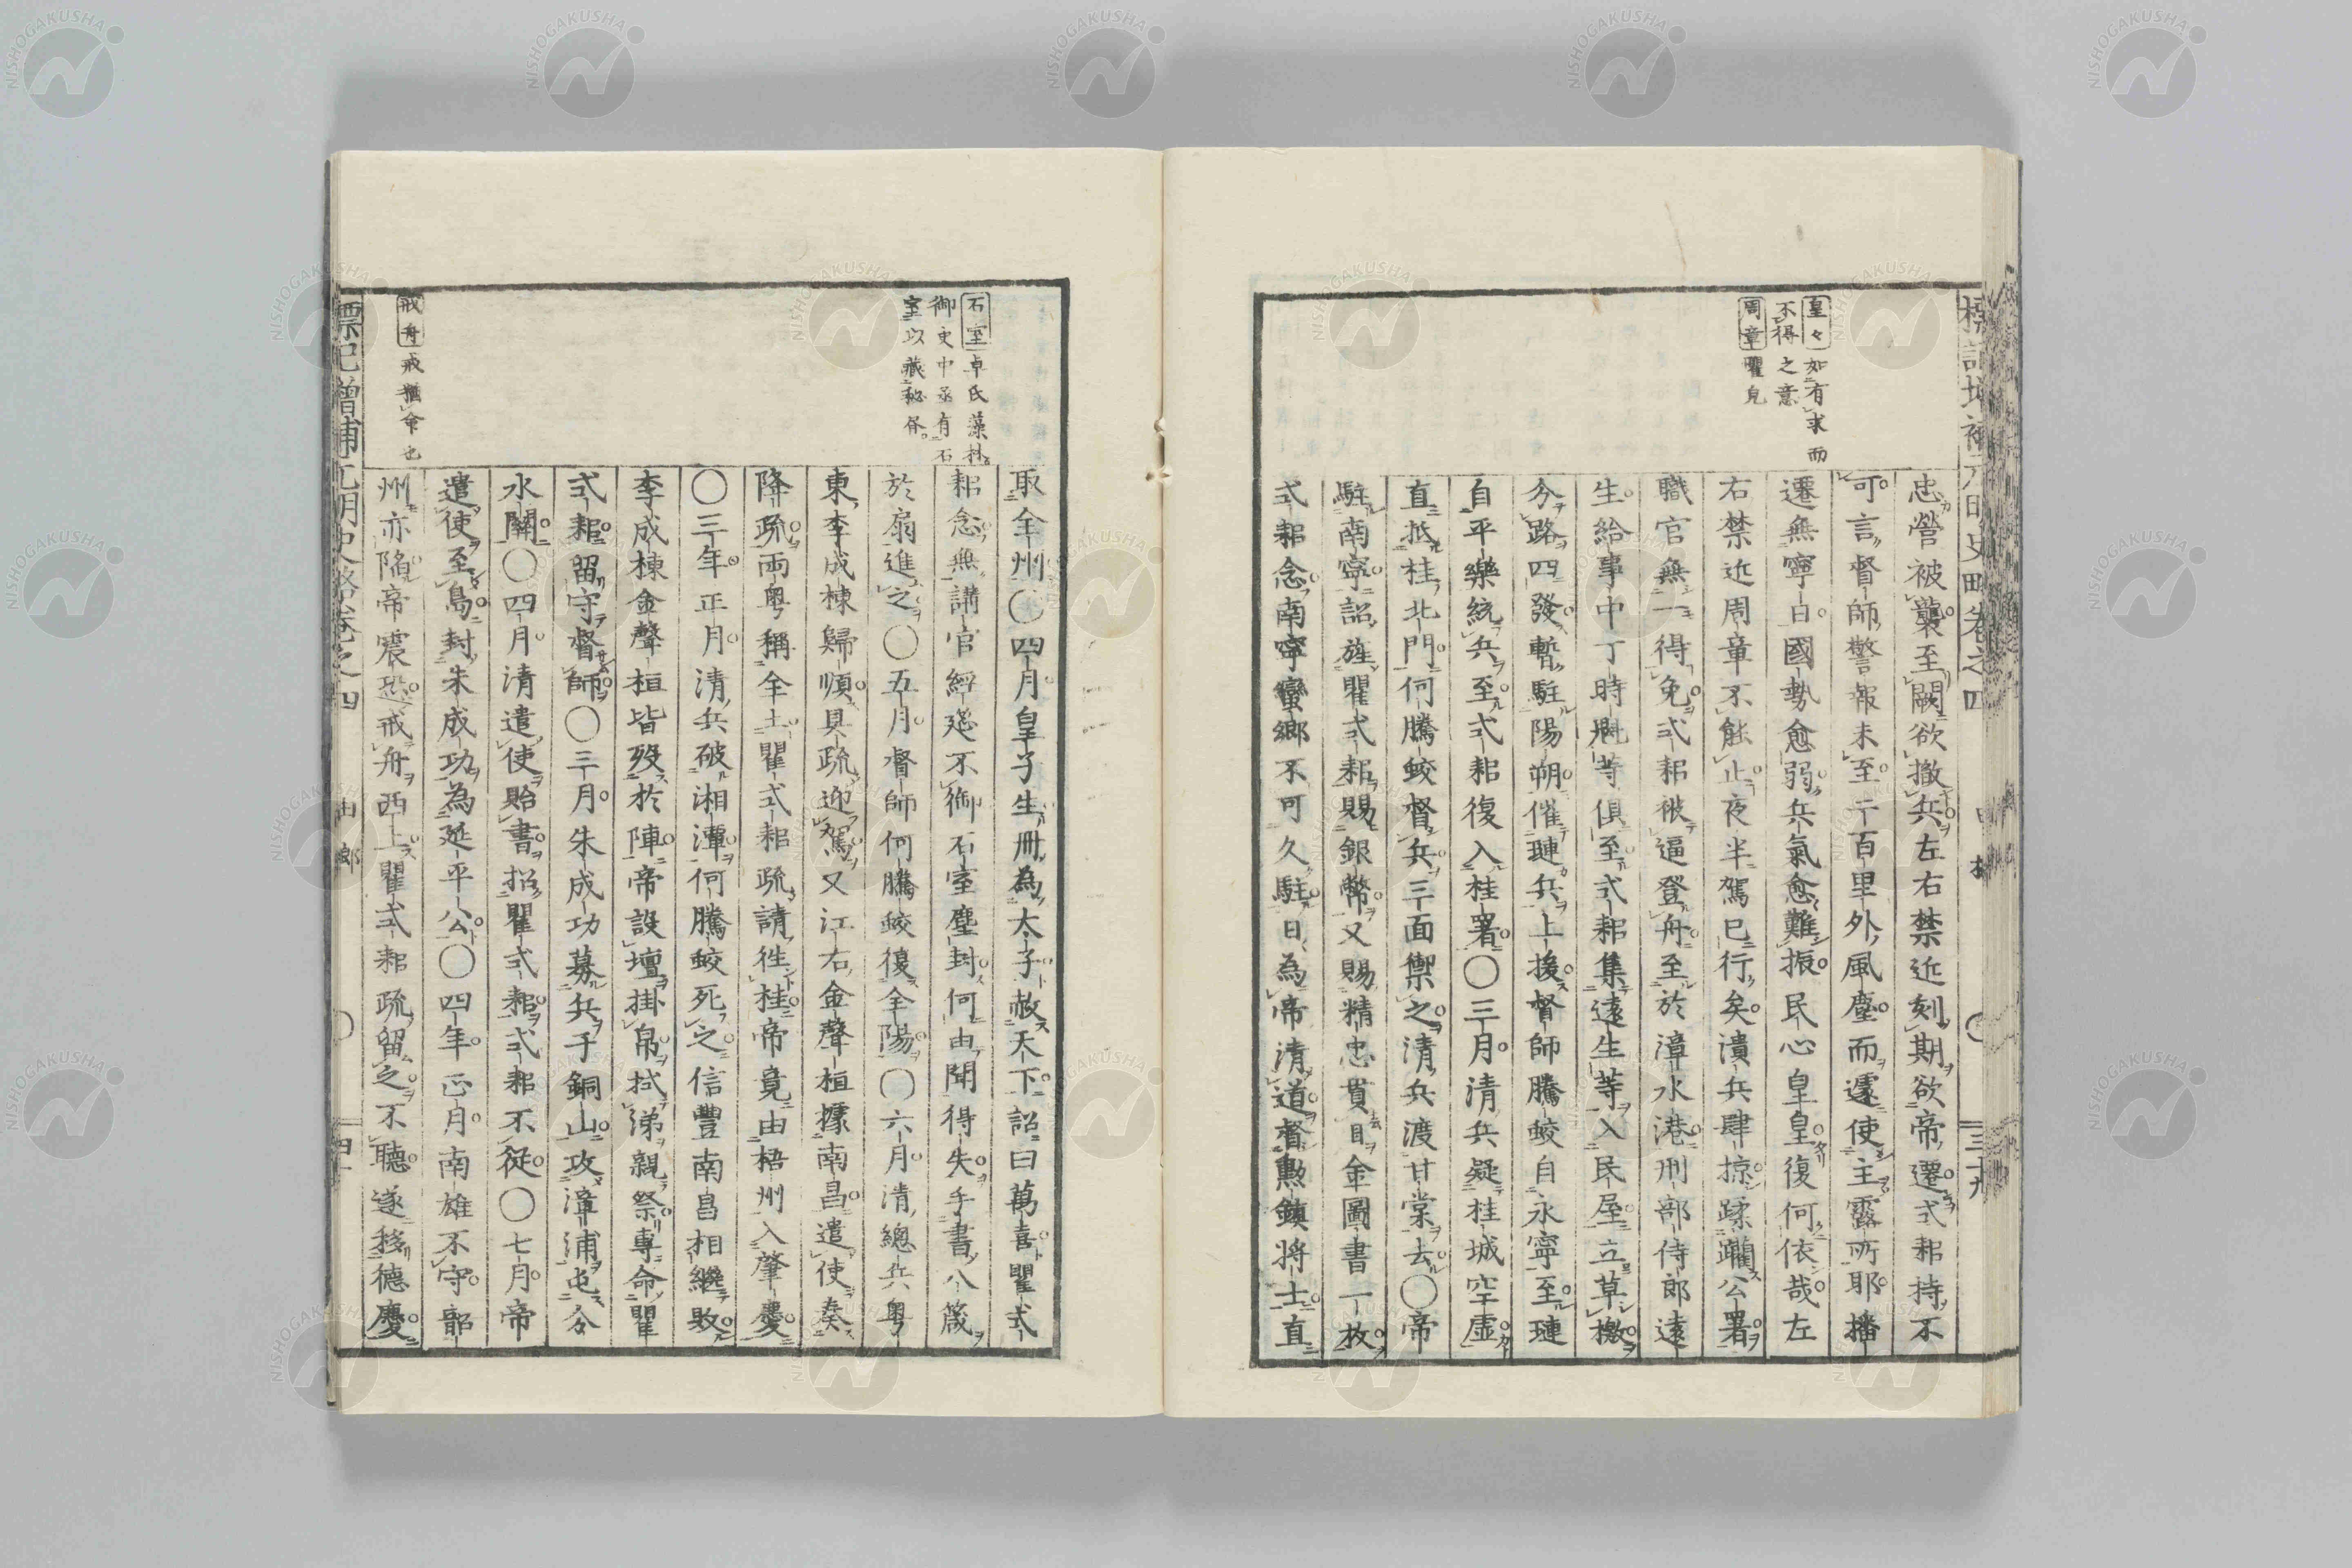 皇々如有求而
不得之意
周章瞿皃
忠營被襲至闕欲撤兵左右禁近刻期欲帝遷式耜持不
可言督師警報未至二百里外風塵而遽使主露所耶播
遷無寧日國勢愈弱兵氣愈難振民心皇皇復何依哉左
右禁近周章不能止夜半駕已行矣潰兵肆掠蹂躪公署
職官無一得免式耜被逼登舟至於漳水港刑部侍郎遠
生給事中丁時魁等俱至式耜集遠生等入民屋立草檄
分路四發暫駐陽朔催璉兵上援督師騰蛟自永寧至璉
自平樂統兵至式耜復入桂署〇三月清兵疑桂城空虛
直抵桂北門何騰蛟督兵三面禦之清兵渡甘棠去〇帝
駐南寧詔旌瞿式耜賜銀幣又賜精忠貫日金圖書一枚
式耜念南寧蠻鄉不可久駐日為帝清道督勲鎮將士直
石室卓氏藻林
御史中丞有石
室以藏秘書
取全州〇四月皇子生冊為太子赦天下詔曰萬喜瞿式
耜念無講官經筵不御石室塵封何由聞得失手書八箴
於扇進之〇五月督師何騰蛟復全陽〇六月清總兵粤
東李成棟歸順具疏迎駕又江右金聲桓據南昌遣使奏
降疏兩粤稱全土瞿式耜疏請徃桂帝竟由梧州入肇慶
〇三年正月清兵破湘潭何騰蛟死之信豐南昌相繼敗
李成棟金聲桓皆殁於陣帝設壇掛帛拭涕親祭專命瞿
式耜留守督師〇三月朱成功募兵于銅山攻漳浦屯分
水關〇四月清遣使貽書招瞿式耜式耜不從〇七月帝
遣使至島封朱成功為延平公〇四年正月南雄不守韶
州亦陷帝震恐戒舟西上瞿式耜疏留之不聽遂移德慶
戒舟戒猶命也
標記增補元明史略卷之四